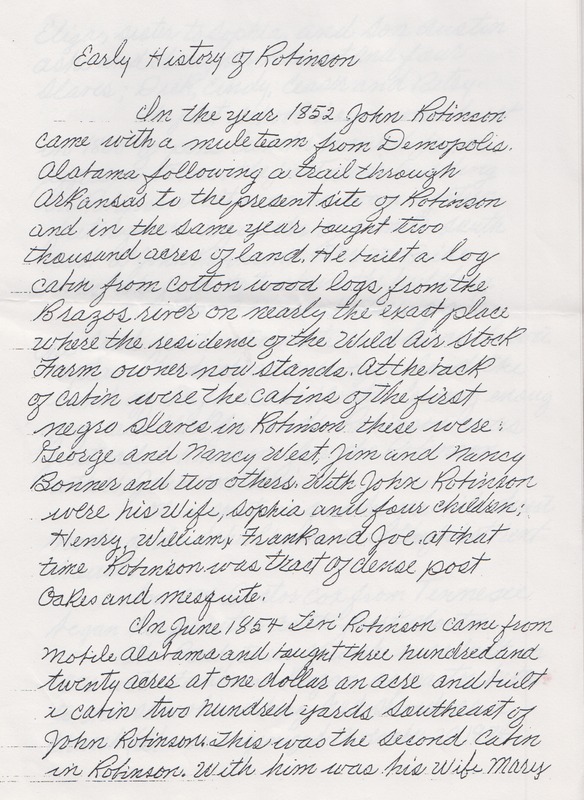 Early History of Robinson
In the year 1852 John Robinson
came with a mule team from Demopolis.
Alabama following a trail through
Arkansas to the present site of Robinson
and in the same year bought two
thousand acres of land. He built a log
cabin from cotton wood logs from the
Brazos river on nearly the exact place
where the residence of the Wild Air Stock
Farm owner now stands. At the back
of cabin were the cabins of the first
negro slaves in Robinson these were:
George and Nancy West, Jim and Nancy
Bonner and two others. With John Robinson
were his Wife, Sophia and four children;
Henry, William, Frank and Joe. at that
time Robinson was trast of dense post
Oakes and mesquite.
In June 1854 Levi Robinson came from
Mobile Alabama and bought three hundred and
twenty acres at one dollar an acre and built
a cabin two hundred yards Southeast of
John Robinson. This was the second cabin
in Robinson. With him was his Wife Mary